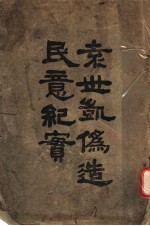 袁世凱偽造
民意紀實